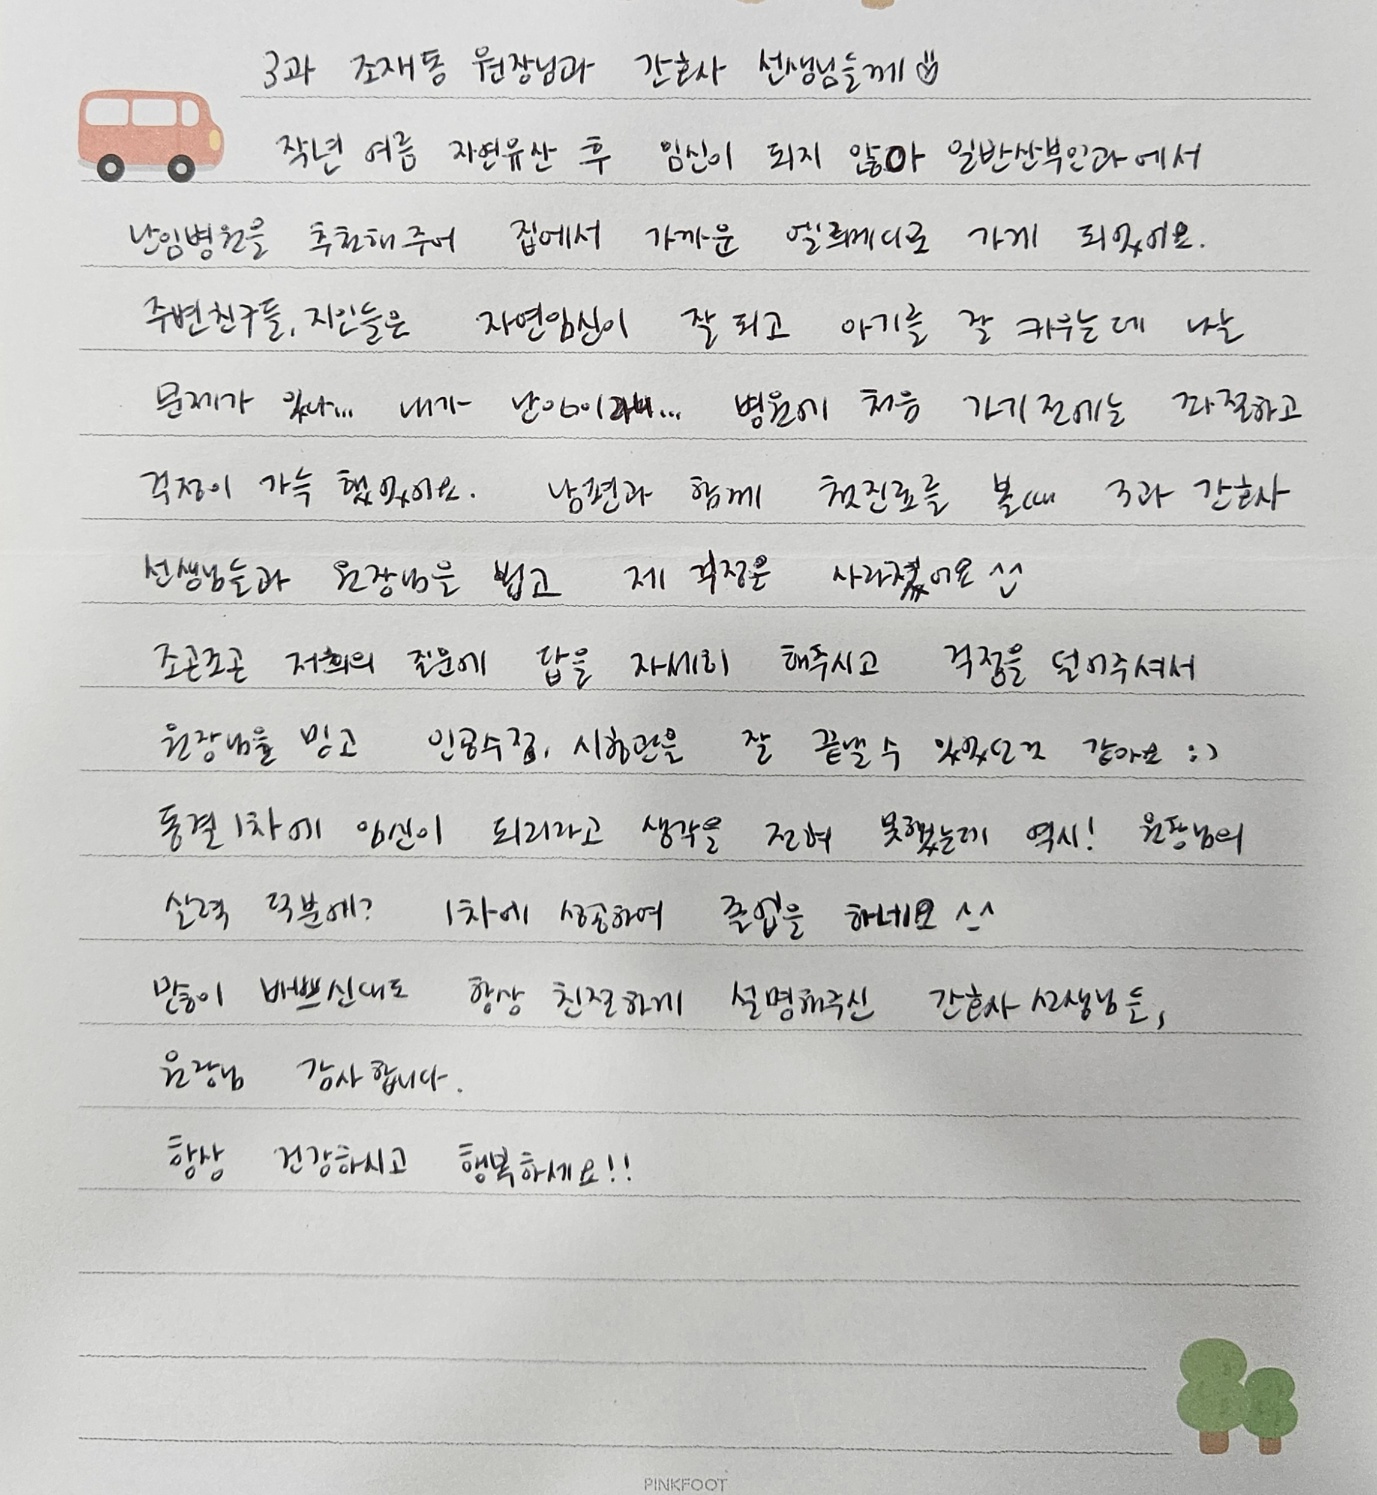 3과 조재동 원장님과 간호사 선생님들께
작년 여름 자연유산 후 임신이 되지 않아 일반산부인과에서
난임병원을 추천해주어 집에서 가까운 엘르메디로 가게 되었어요.
주변친구들, 지인들은 자연임신이 잘 되고 아기를 잘 키우는데 나는
문제가 있나... 내가 난임이라니... 병원에 처음 가기전에는 좌절하고
걱정이 가득 했었어요. 남편과 함께 첫진료를 볼때 3과 간호사
선생님들과 원장님을 뵙고 제 걱정은 사라졌어요 ^^
조곤조곤 저희의 질문에 답을 자세히 해주시고 걱정을 덜어주셔서
원장님을 믿고 인공수정, 시험관을 잘 끝낼 수 있었던것 같아요 :)
동결 1차에 임신이 되리라고 생각을 전혀 못했는데 역시! 원장님의
실력 덕분에? 1차에 성공하여 졸업을 하네요 ^^
많이 바쁘신대도 항상 친절하게 설명해주신 간호사 선생님들,
원장님 감사합니다.
항상 건강하시고 행복하세요!!
PINKFOOT